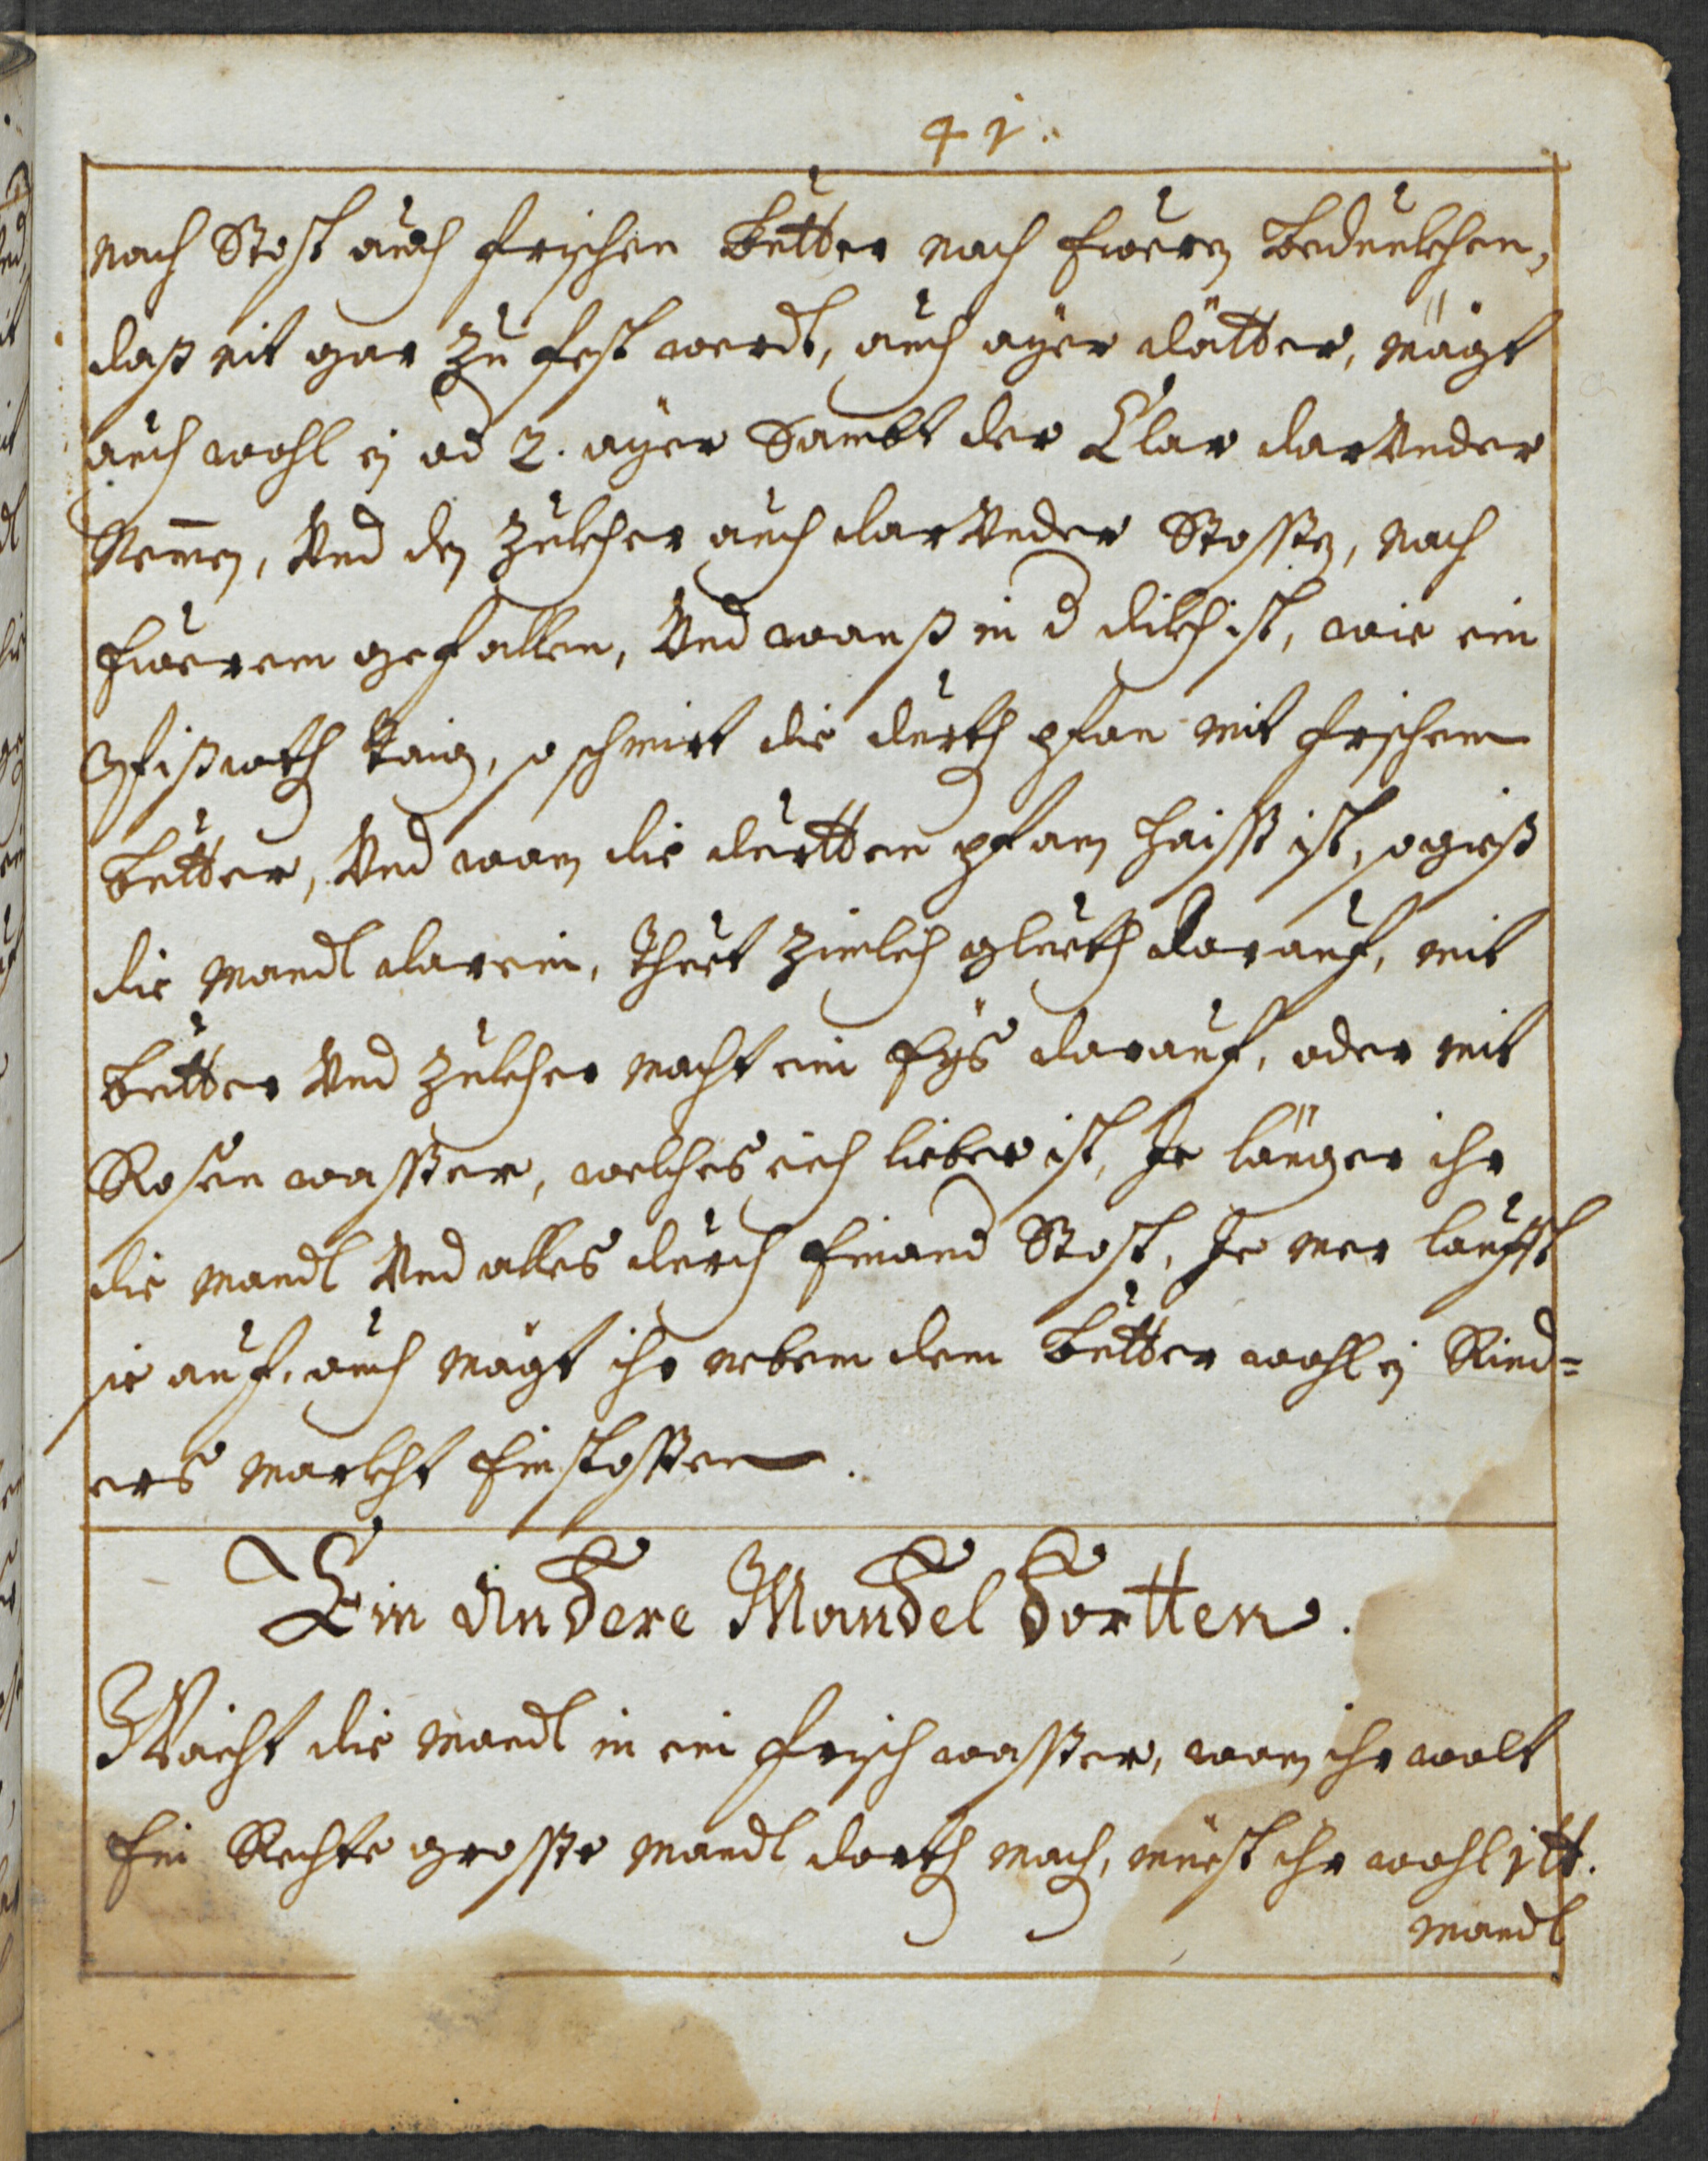 41.
nach Stost auch frischen Butter nach Eweren bedunckhen,
daß nit gar zu fest werdt, auch ayer dötter, mögt
auch wohl ein od 2. ayer Sambt der Clar darunder
Nemen, Und den Zuckher auch darUnder Stossen, nach
Ewerem gefallen, Und wanß in d dickh ist, wie ein
taig, so schmirt die durth pfan mit frischem
butter, Und wan die durtten pfann haiss ist, so giest
die mandl darein, Thuet zimlich glueth darauf, mit
butter Und Zuckher macht ein Eys darauf, oder mit
Rosen wasser, welches eich lieber ist, Je länger ihr
die mandl Und alles durch Einand Stost, Je mer laufft
sie auf, auch mögt ihr nebem dem butter wohl ein Rind=
ers marckht Einstossen.
Ein Andere Mandel Dortten.
Waicht die mandl in ein frisch wasser, wan ihr wolt
Ein Rechte grosse mandl dorth mach, müest ihr wohl 1 tt.
mandl